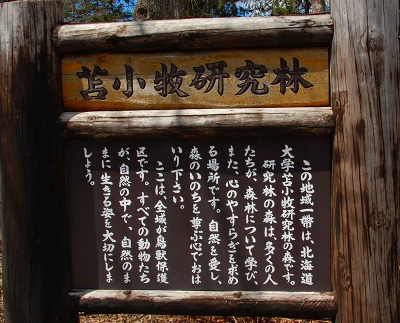 苫小牧研究林
この地域一帯は、北海道
大学苫小牧研究林の森です。
研究林の森は、多くの人
たちが、森林について学び、
また、心のやすらぎを求め
る場所です。自然を愛し、
森のいのちを尊ぶ心でおは
いり下さい。
ここは全域が鳥獣保護
区です。すべての動物たち
が、自然の中で、自然のま
まに生きる姿を大切にしま
しょう。